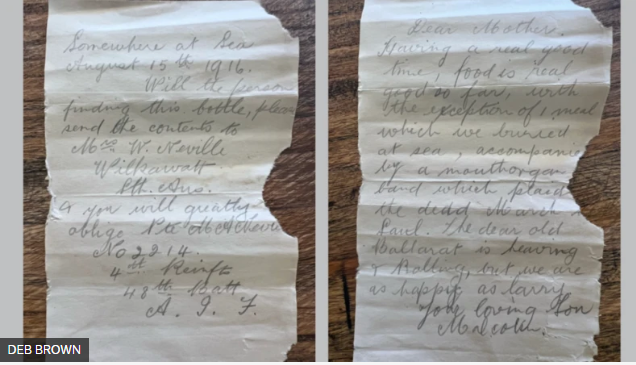 Somewhere at Sea
August 15th 1916.
Will the person
finding this bottle, please
send the contents to
Mrs W. Neville
Wilkawatt
Sth. Aus.
& you will greatly
oblige Pte M A Neville
No 2214.
4th Reinfts
48th Batt
A. I. F.
Dear Mother.
Having a real good
time, food is real
good so far, with
the exception of 1 meal
which we buried
at sea, accompanie
by a mouthorgan
band which plaid
the dead March
Saul. The dear old
Ballarat is heaving
& Rolling, but we are
as happy as larry
your loving Son
Malcolm.
DEB BROWN